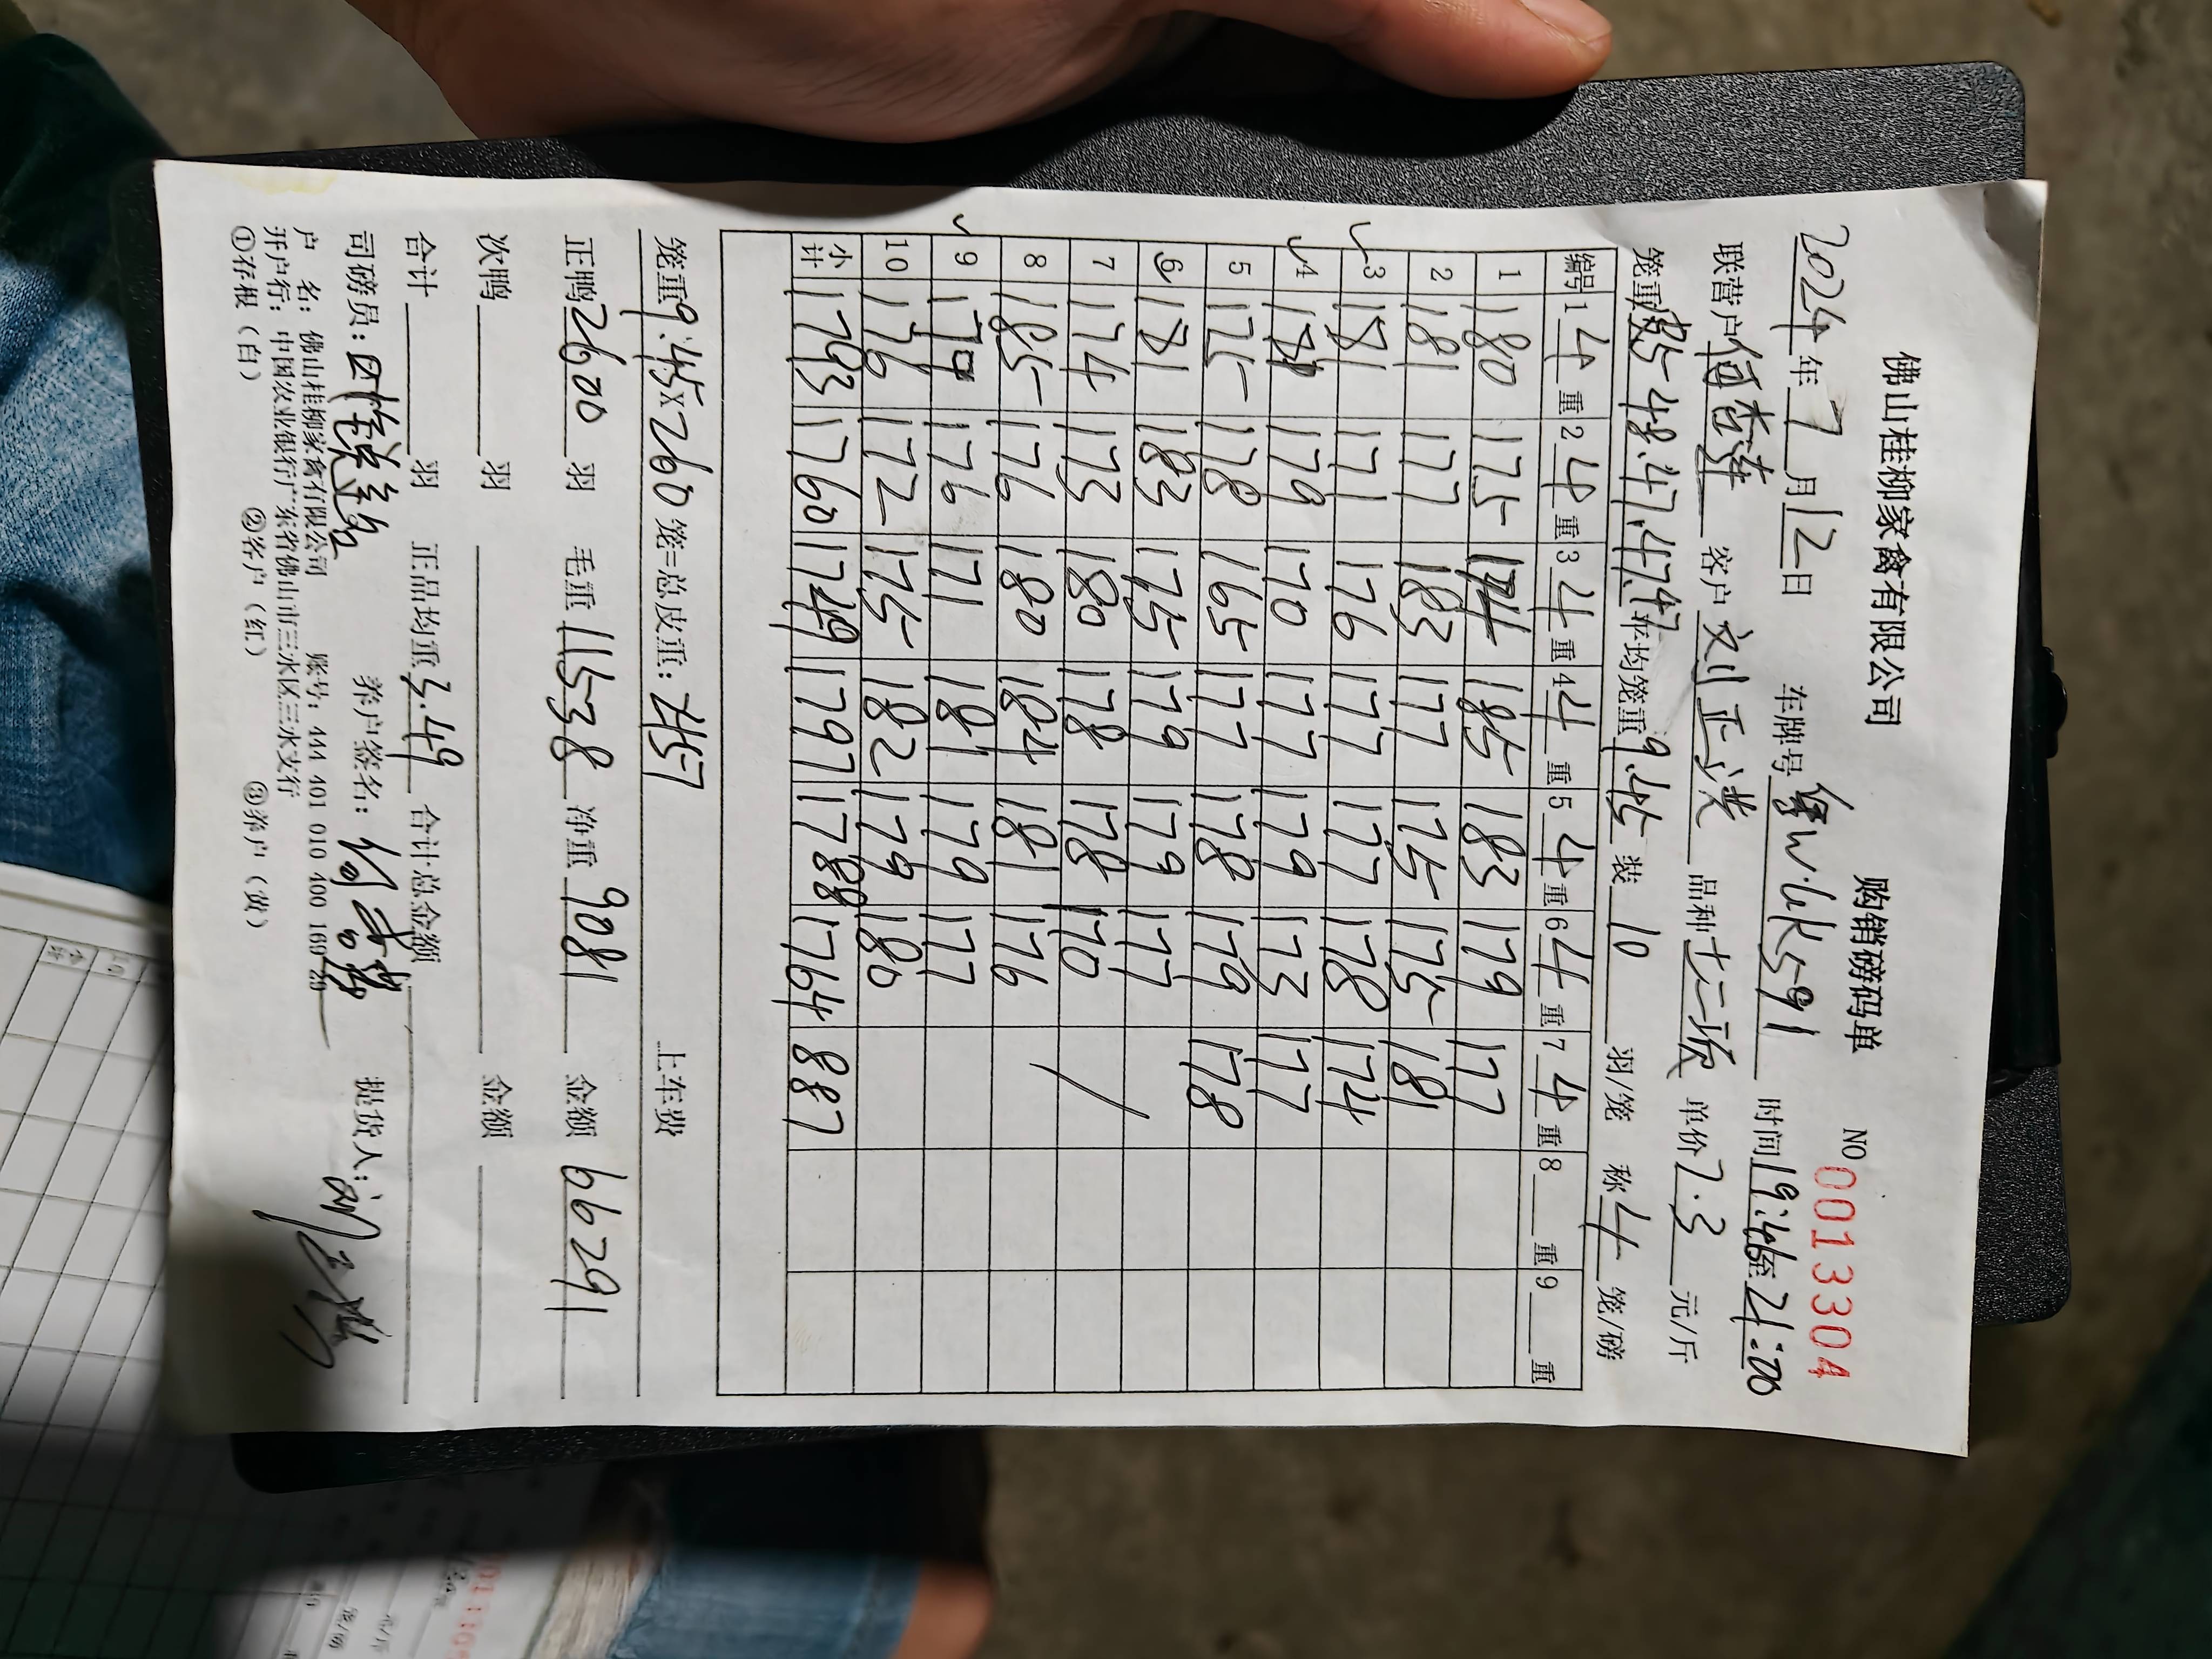 佛山桂柳家禽有限公司 购销磅码单 NO 0013304
2024年7月12日 车牌号 时间19:46至21:00
联营户何杏连 客户刘正洪 品种十二项 单价7.3元/斤
笼重 48.47.47.47 平均笼重9.45 装10羽/笼 称4笼/磅
编号 1 4 重 2 4 重 3 4 重 4 4 重 5 4 重 6 4 重 7 4 重 8 重 9 重
1 180 175 174 185 183 179 177
2 181 177 183 177 175 175 181
3 181 171 176 177 177 178 174
4 179 170 177 179 173 177
5 175 178 165 177 178 179 178
6 181 183 175 179 179 177
7 174 173 180 178 178 170
8 185 176 180 184 181 176
9 179 176 171 181 179 177
10 176 172 175 182 179 180
小计 1793 1760 1749 1797 1788 1764 887
笼重9.45×260笼=总皮重：2457 上车费
正鸭2600羽 毛重11538 净重9081 金额66291
次鸭 羽 金额
合计 羽 正品均重3.49 合计总金额
司磅员： 养户签名： 提货人：
户 名：佛山桂柳家禽有限公司 账号：444 401 010 400 169 28
开户行：中国农业银行广东省佛山市三水区三水支行
①存根（白） ②客户（红） ③养户（黄）